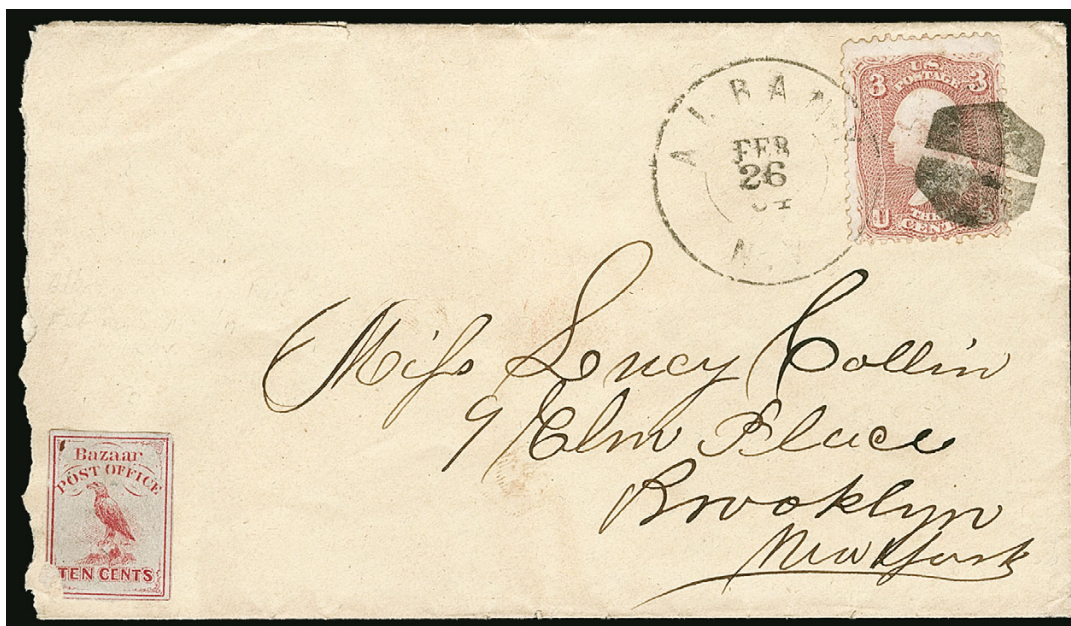 ALBANY
FEB
26
N.Y
3 U.S. 3
POSTAGE
U S
CENTS
Miss Lucy Collin
9 Elm Place
Brooklyn
New York
Bazaar
POST OFFICE
TEN CENTS